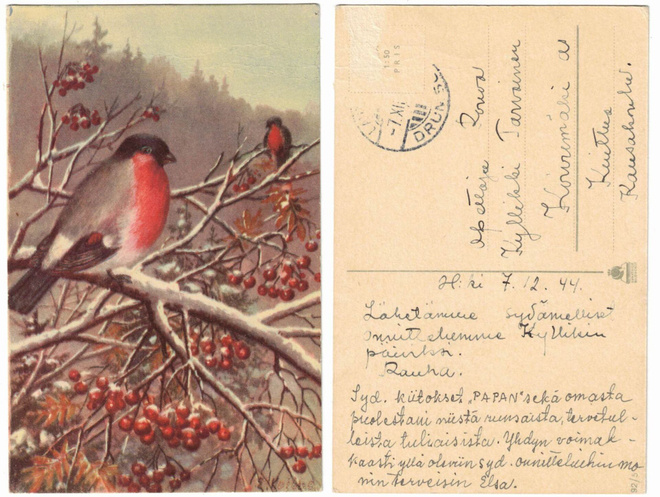 1:50
PRIS
-7.XII
Opettaja Rouva
Kyllikki Tarvainen
Koivumäki as
Kansakoulu.
H:ki 7.12.44.
Lähetämme sydämelliset
onnittelumme Kyllikin
päivänä.
Rauha.
Syd. kiitokset "PAPAN" sekä omasta
puolestani niistä runsaista, tervetul-
leista tuliaisista. Yhdyn voimak-
kaasti yllä oleviin syd. onnitteluihin mo
nin terveisin Elsa.